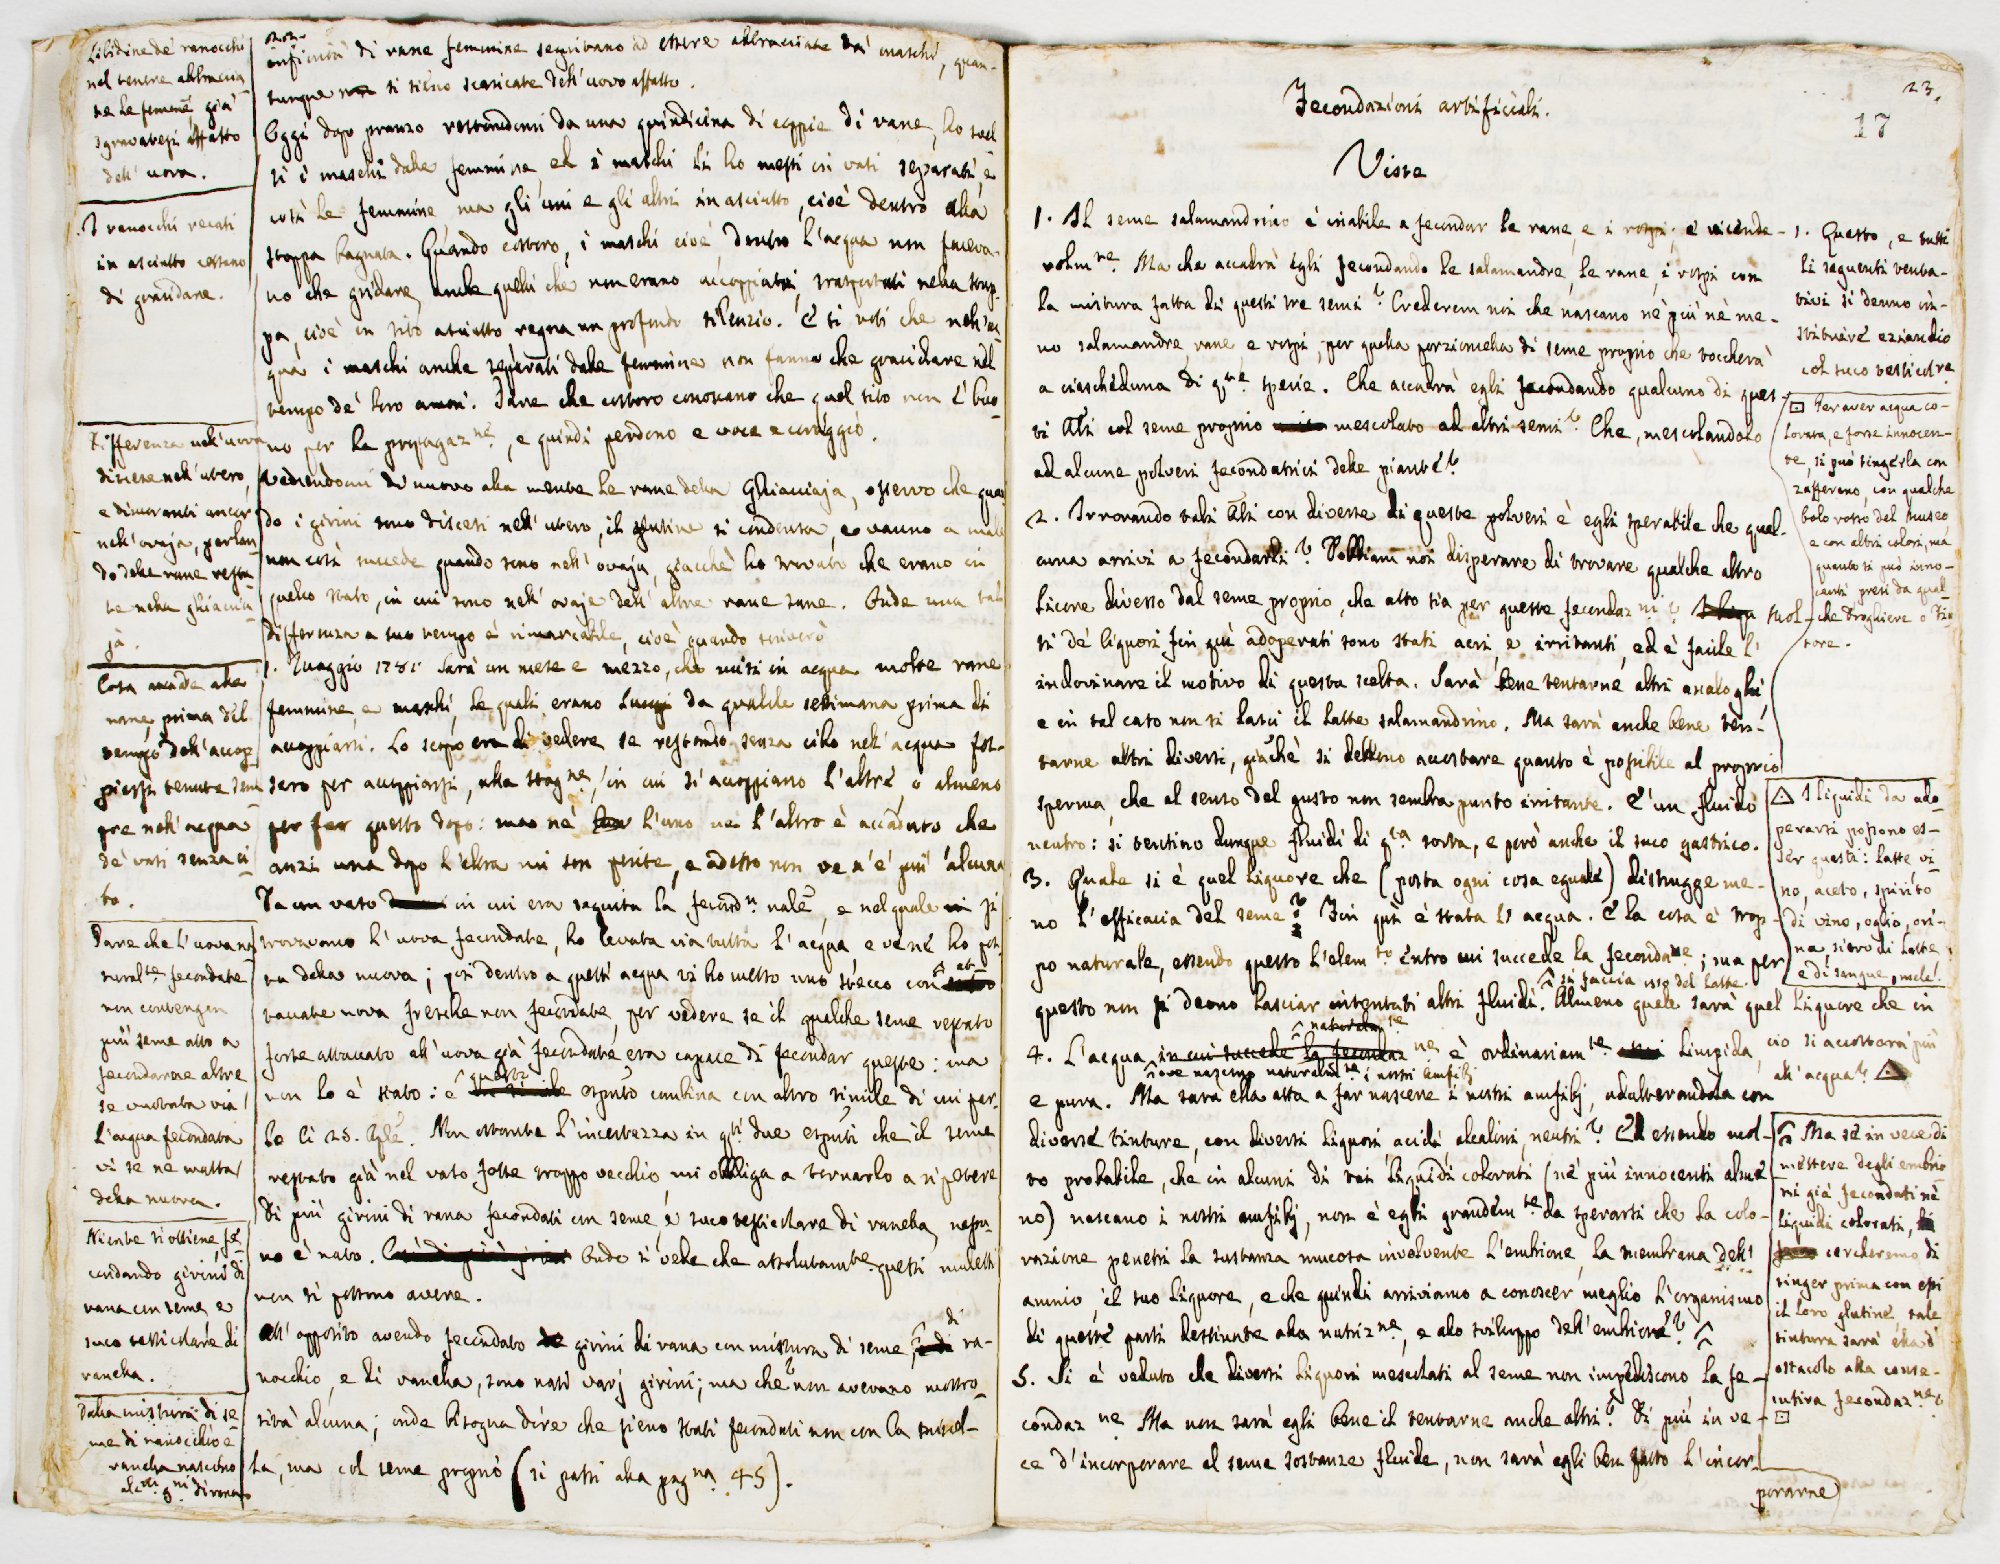 Libidine de' ranocchi
nel tenere abbraccia
te le femmine, già
sgravatesi affatto
dell' uova.
infinità di rane femmine seguivano ad essere abbracciate da' maschi, quan-
tunque si sieno scaricate dell'uovo affatto.
Oggi dopo pranzo restandomi da una quindicina di coppie di rane, ho scel
ti i maschi dalle femmine ed i maschi li ho messi in vasi separati, e
così le femmine ma gli uni e gli altri in asciutto, cioè dentro alla
stoppa bagnata. Quando costoro, i maschi cioè, dentro l'acqua non faceva-
no che gridare, anche quelli che non erano accoppiati, trasportati nella stop-
pa, cioè in sito asciutto regna un profondo silenzio. E si noti che nell'ac
qua i maschi anche separati dalle femmine non fanno che gracidare nel
tempo de' loro amori. Pare che costoro conoscano che quel sito non è buo-
no per la propagaz.ne, e quindi perdono e voce e coraggio.
I ranocchi recati
in asciutto cessano
di gracidare.
Differenza nell'uova
discese nell' utero,
e dimoranti ancor
nell' ovaja, parlan
do delle rane resta
te nella ghiaccia
ja.
Vedendomi di nuovo alla mente le rane della Ghiacciaja, osservo che quan
do i girini sono discesi nell' utero, il glutine si condensa, e vanno a male
non così succede quando sono nell' ovaja, giacchè ho trovato che erano in
quello stato, in cui sono nell' ovaje dell' altre rane sane. Onde una tal
differenza a suo tempo è rimarcabile, cioè quando scriverò
Cosa accade alle
rane prima del
tempo dell' accop
piarsi tenute sem
pre nell' acqua
de' vasi senza ci
bo.
1. Maggio 1781 Sarà un mese e mezzo, che misi in acqua molte rane
femmine, e maschi, le quali erano lungi da qualche settimana prima di
accoppiarsi. Lo scopo era di vedere se restando senza cibo nell' acqua fos-
sero per accoppiarsi, alla stag.ne, in cui s' accoppiano l'altre, o almeno
per far questo dopo: ma nè l'uno nè l'altro è accaduto che
anzi una dopo l'altra mi son perite, e adesso non ve n' è più alcuna
Pare che l'uova na
turalte. fecondate
non contengan
più seme atto a
fecondarne altre
se votata via
l'acqua fecondata
vi se ne metta
della nuova.
Da un vaso in cui era seguita la fecond.n nale, e nel quale si
trovavano l'uova fecondate, ho levata via tutta l'acqua, e ve ne ho pos
ta della nuova; poi dentro a quest' acqua vi ho messo uno stecco con at-
taccate uova fresche non fecondate, per vedere se il qualche seme restato
forse attaccato all' uova già fecondate era capace di fecondar queste: ma
non lo è stato: e questo esperto combina con altro simile di cui par-
lo li 25. Aple. Non ostante l'incertezza in qti due esperti che il seme
restato già nel vaso fosse troppo vecchio, mi obbliga a tornarlo a ripetere
Niente si ottiene, fe
condando girini di
rana con seme e
succo testicolare di
ranella.
Di più girini di rana fecondati con seme, e suco testicolare di ranella, nessu
no è nato. Onde si vede che assolutamte questi muletti
non si possono avere.
Dalla mistura di se
me di ranocchio e
ranella nascono
All' opposito avendo fecondato girini di rana con mistura di seme, di ra-
nocchio, e di ranella, sono nati varj girini; ma che non avevano mostro-
sità alcuna; onde bisogna dire che sieno stati fecondati non con la miscel-
la, ma col seme proprio (si passi alla pag.na 45).
23.
17
Fecondazioni artificiali.
Viste
1. Il seme salamandrino è inabile a fecondar le rane, e i rospi, e vicende-
volmne. Ma che accadrà egli fecondando le salamandre, le rane, i rospi con
la mistura fatta di questi tre semi? Crederem noi che nascano nè più nè me-
no salamandre, rane, e rospi, per quella porzioncella di seme proprio che toccherà
a ciascheduna di qste specie. Che accadrà egli fecondando qualcuno di ques-
ti Ani col seme proprio mescolato ad altri semi? Che, mescolandolo
ad alcune polveri fecondatrici delle piante?
1. Questo, e tutti
li seguenti tenta-
tivi si denno in-
stituire eziandio
col suco testicolre
⊡ Per aver acqua co-
lorata, e forse innocen-
te, si può tingerla con
zafferano, con qualche
bolo rosso del museo
e con altri colori, ma
quanto si può inno-
centi presi da qual-
che Droghiere o Tin
tore.
2. Irrorando tali Ani con diverse di queste polveri è egli sperabile che qual-
cuna arrivi a fecondarli? Dobbiam noi disperare di trovare qualche altro
licore diverso dal seme proprio, che atto sia per queste fecondazni? Mol-
ti de' liquori fin quì adoperati sono stati acri, e irritanti, ed è facile l'
indovinare il motivo di questa scelta. Sarà bene tentarne altri analoghi,
e in tal caso non si lasci il latte salamandrino. Ma sarà anche bene ten-
tarne altri diversi, giacchè si debbono accostare quanto è possibile al proprio
sperma, che al senso del gusto non sembra punto irritante. E' un fluido
neutro: si tentino dunque fluidi di qta sorta, e però anche il suco gastrico.
△ I liquidi da ado-
perarsi possono es-
ser questi: latte vi
no, aceto, spirito
di vino, oglio, ori-
na, siero di latte
e di sangue, mele.
3. Quale si è quel liquore che (posta ogni cosa eguale) distrugge me-
no l'efficacia del seme? Fin quì è stata l' acqua. E la cosa è trop-
po naturale, essendo questo l'elemto entro cui succede la fecondane; ma per
questo non si deono lasciar intentati altri fluidi. si faccia uso del latte. Almeno quale sarà quel liquore che in
ciò si accosterà più
all' acqua? △
4. L'acqua in cui succede la fecondaz ne naturalmte ove nascono naturalmte i nostri Amfibj è ordinariamte limpida,
e pura. Ma sarà ella atta a far nascere i nostri amfibj, adulterandola con
diverse tinture, con diversi liquori acidi alcalini, neutri? Ed essendo mol-
to probabile, che in alcuni di tai liquidi colorati (ne' più innocenti alme
no) nascano i nostri amfibj, non è egli grandemte da sperarsi che la colo-
razione penetri la sustanza mucosa involvente l'embrione, la membrana dell'
amnio, il suo liquore, e che quindi arriviamo a conoscer meglio l'organismo
di queste parti destinate alla nutrizne, e allo sviluppo dell' embrione?
Ma se in vece di
mettere degli embrio
ni già fecondati nè
liquidi colorati,
cercheremo di
tinger prima con essi
il loro glutine, tale
tintura sarà ella d'
ostacolo alla conse-
cutiva fecondazne?
⊡
5. Si è veduto che diversi liquori mescolati al seme non impediscono la fe-
condaz ne. Ma non sarà egli bene il tentarne anche altri? Di più in ve-
ce d'incorporare al seme sostanze fluide, non sarà egli ben fatto l'incor-
porarne